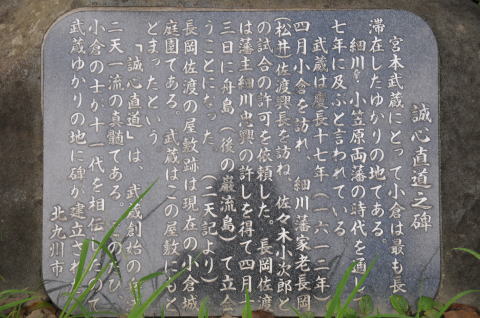 誠心直道之碑
宮本武蔵にとって小倉は最も長く
滞在したゆかりの地である。
細川・小笠原両藩の時代を通して
七年に及ぶと言われている。
武蔵は慶長十七年(一六一二年)
四月小倉を訪れ、細川藩家老長岡
(松井佐渡興長を訪ね、佐々木小次郎と
の試合の許可を依頼した。長岡佐渡
は藩主細川忠興の許しを得て四月十
三日に舟島(後の巌流島)で立会
うことになった。(二天記より)
長岡佐渡の屋敷跡は現在の小倉城
庭園である。武蔵はこの屋敷にもと
どまったという。
「誠心直道」は、武蔵創始の
二天一流の真髄である。このたび、
小倉の士が十一代を相伝したので
武蔵ゆかりの地に碑が建立され
北九州市